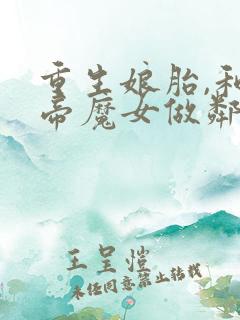 重生娘胎,和
帝魔女做鄰
王呈愷
未经同意禁止转载